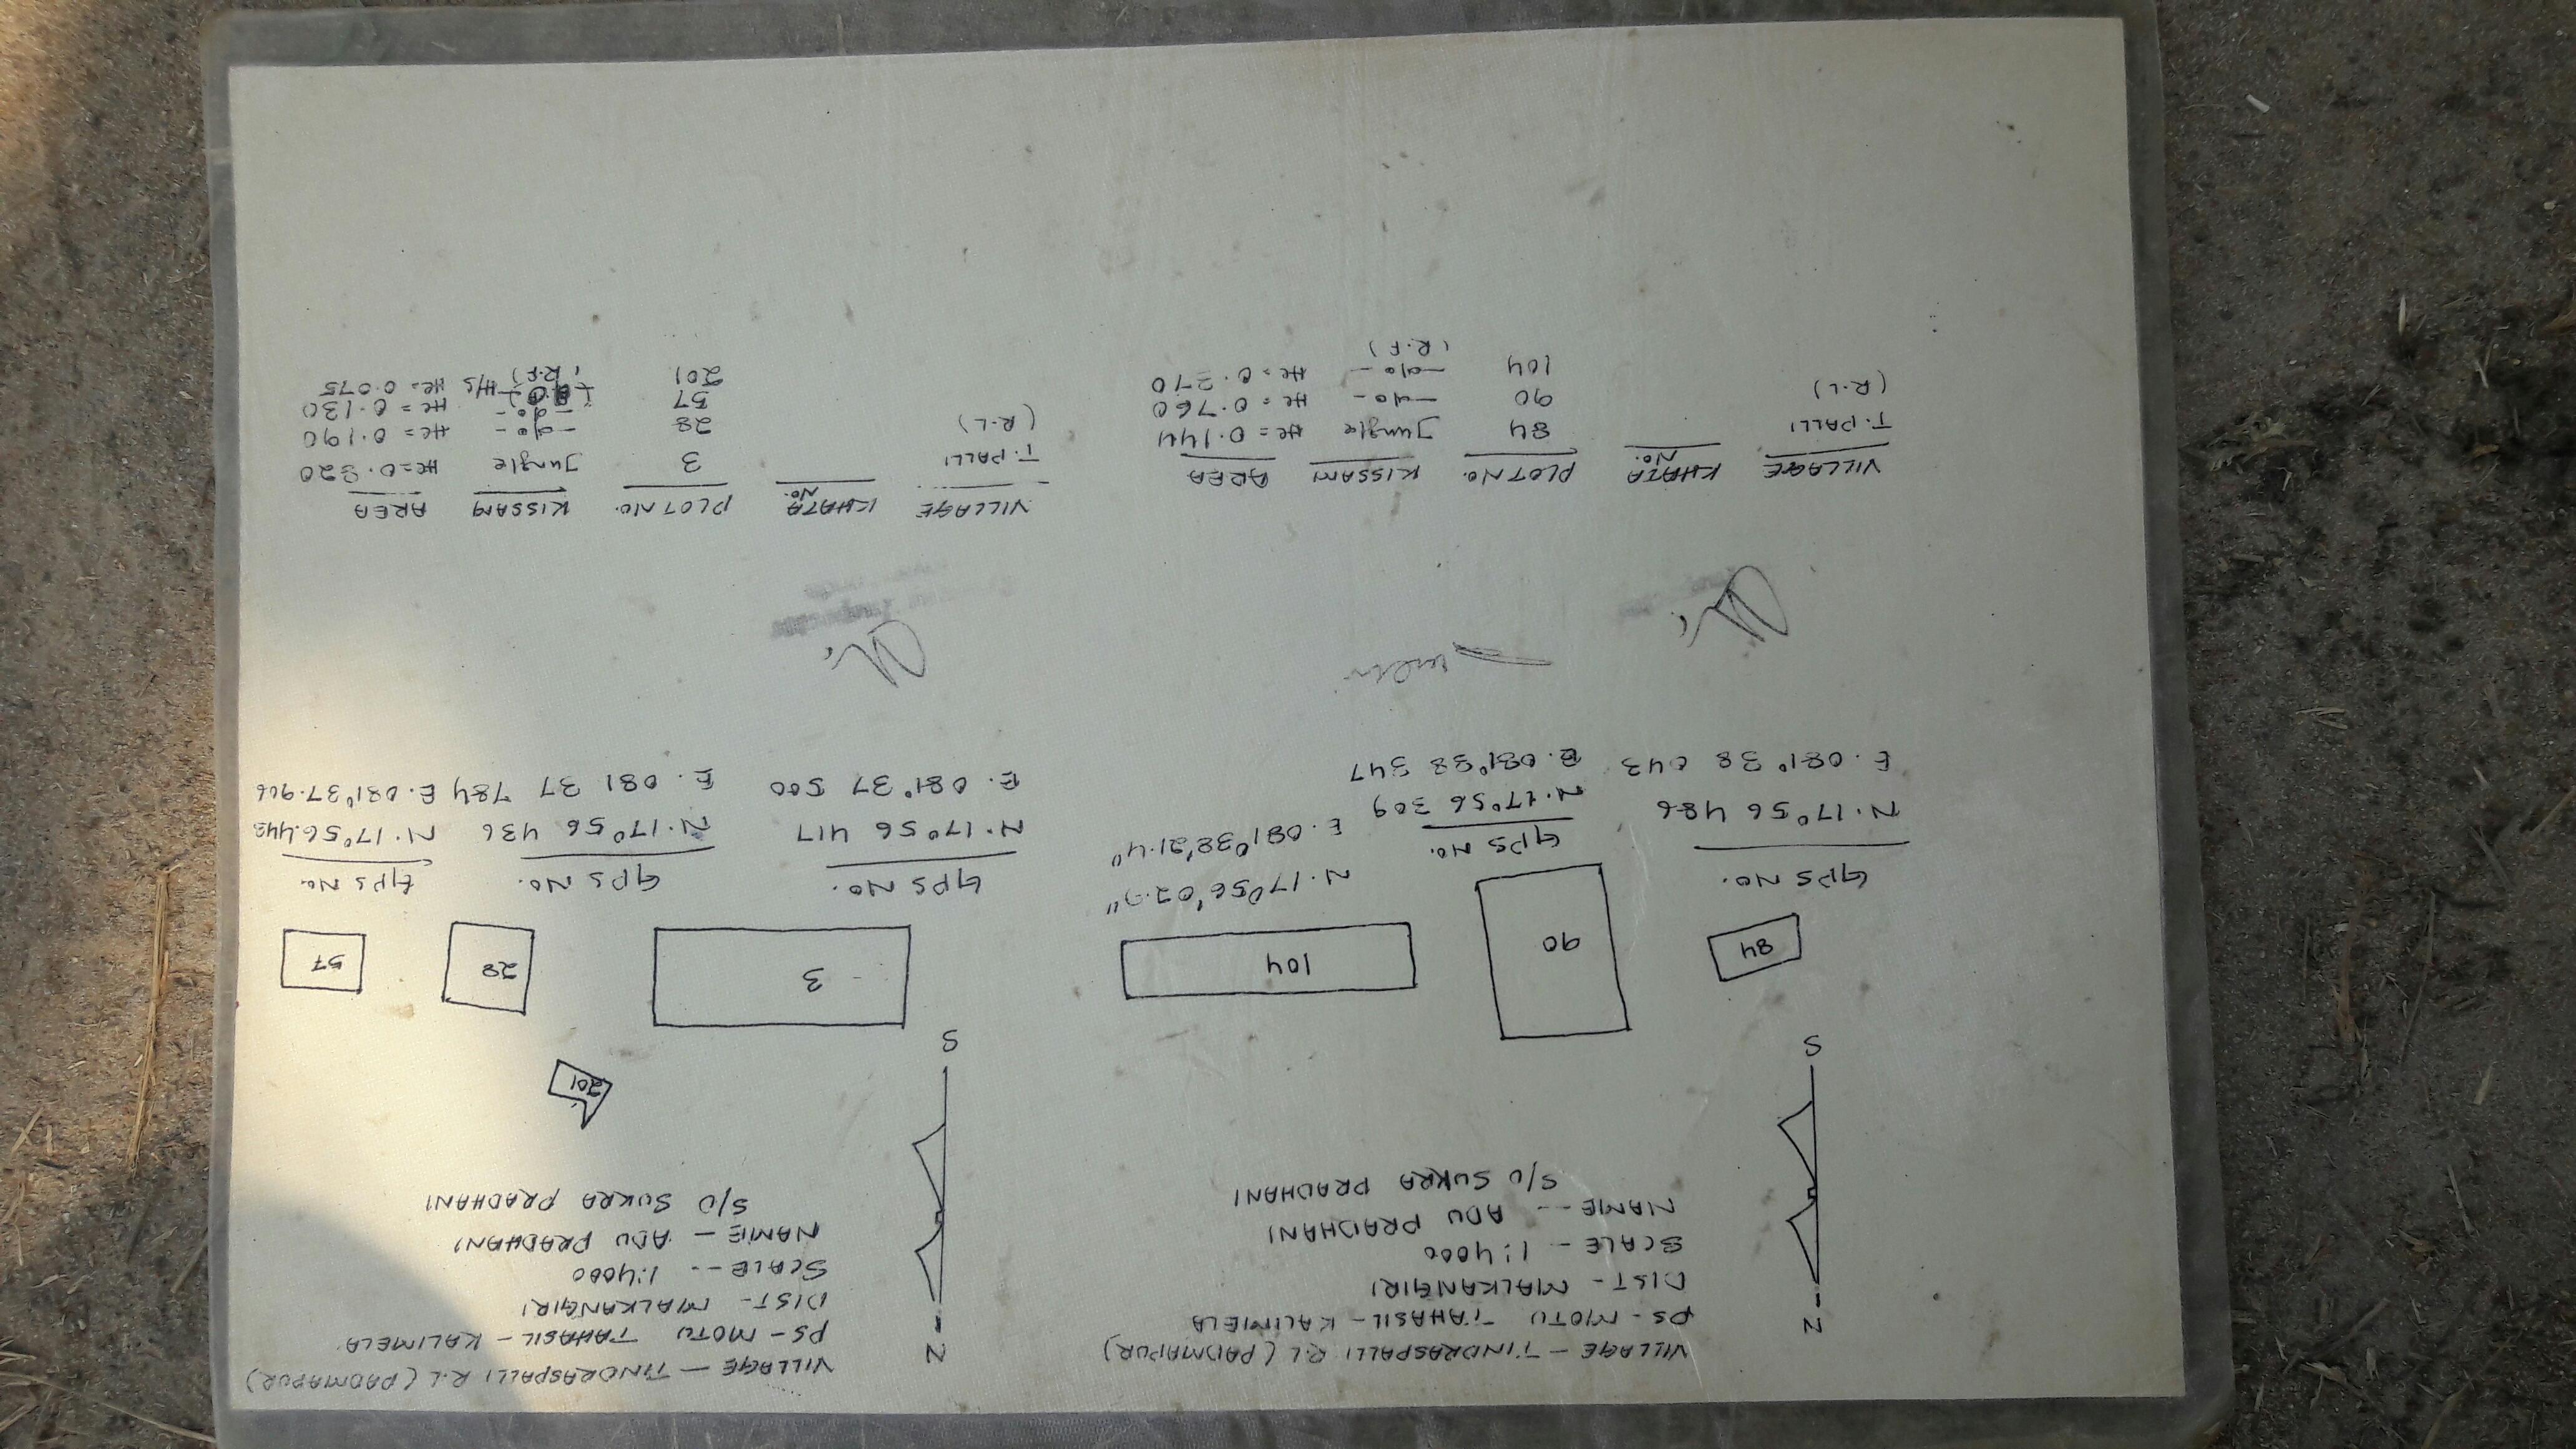 VILLAGE - TINDRASPALLI R.L (PADMAPUR)
PS - MOTU TAHASIL - KALIMELA
DIST - MALKANGIRI
SCALE - 1:4000
NAME -- ADU PRADHANI
S/O SUKRA PRADHANI
N
S
84
90
104
GPS No.
N. 17°56 486
E. 081° 38 043
GPS No.
N. 17°56 309
E. 081°38 347
E. 081°38'21.4"
VILLAGE KHATA No. PLOT No. KISSAM AREA
T. PALLI 84 Jungle Hc = 0.144
(R.L) 90 -do- Hc = 0.760
104 -do- Hc = 0.270
(R.F)
VILLAGE - TINDRASPALLI R.L (PADMAPUR)
PS - MOTU TAHASIL - KALIMELA
DIST - MALKANGIRI
SCALE -- 1:4000
NAME - ADU PRADHANI
S/O SUKRA PRADHANI
N
S
201
3
28
57
GPS No.
N. 17°56 417
E. 081° 37 500
GPS No.
N. 17°56 436
E. 081 37 784
GPS No.
N. 17°56.443
E. 081°37.906
VILLAGE KHATA No. PLOT No. KISSAM AREA
T. PALLI 3 Jungle
(R.L) 28 -do- Hc = 0.190
57 -do- Hc = 0.130
201 H/S Hc = 0.075
(R.F)